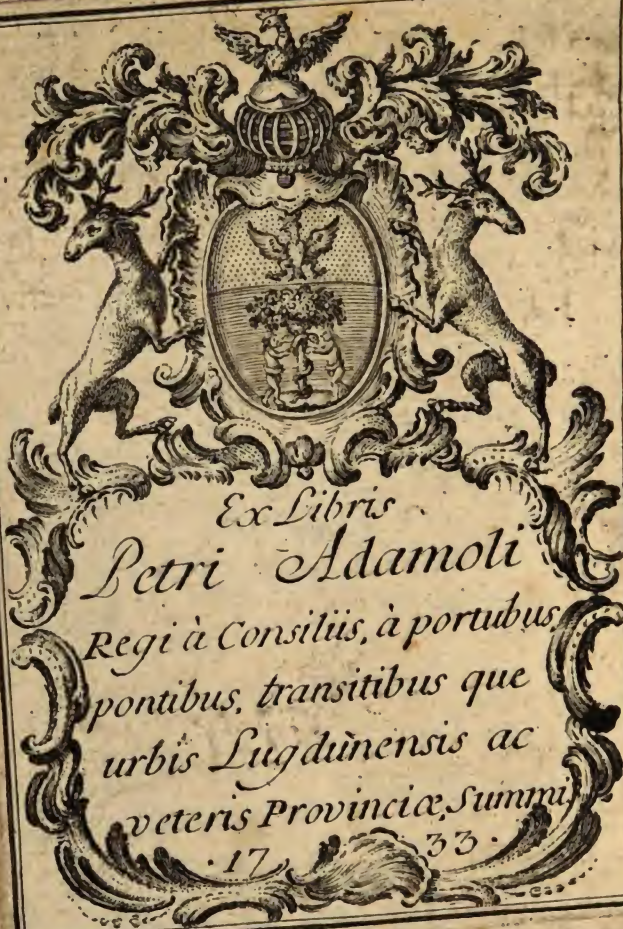 Ex Libris
Petri Adamoli
Regi à Consiliis, à portubus,
pontibus, transitibus que
urbis Lugdùnensis ac
veteris Provinciæ, Summi
· 17 33 ·